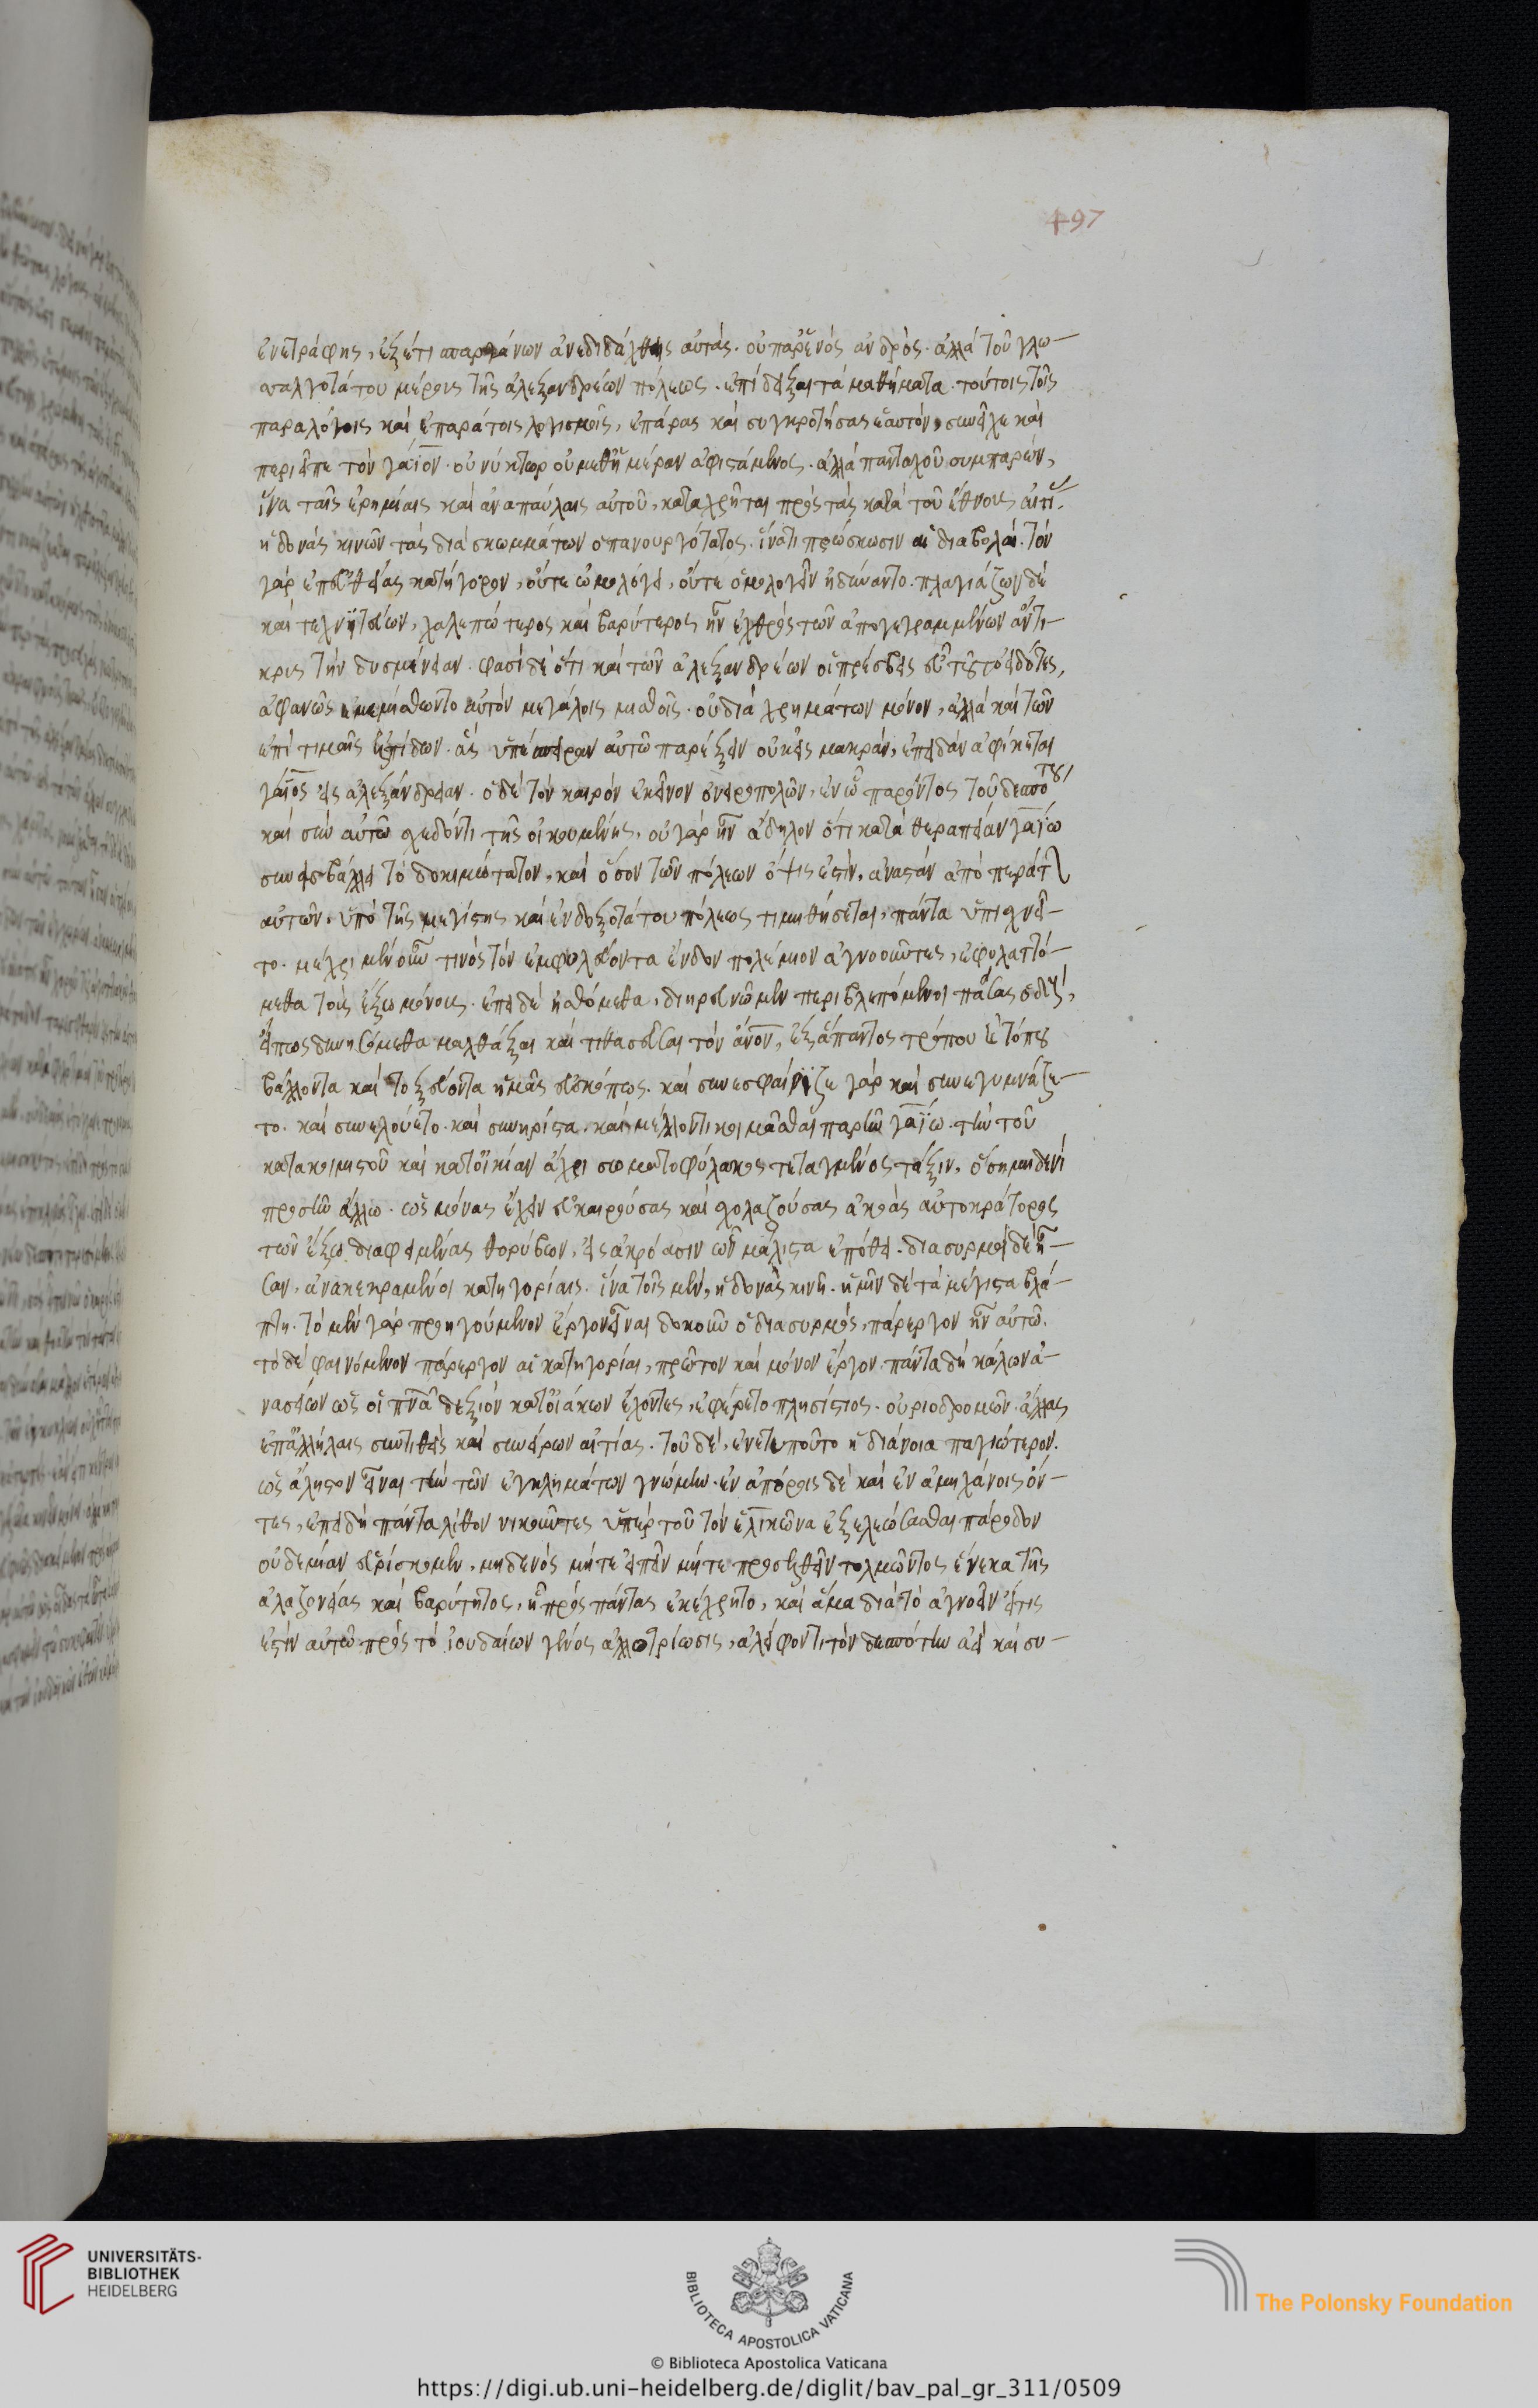 497
ἐνετράφης, ἐξέτι σπαργάνων ἀνεδιδάχθης αὐτάς. οὐ παρἑνὸς ἀνδρὸς. ἀλλὰ τοῦ γλω-
σσαλγοτάτου μέρους τῆς ἀλεξανδρέων πόλεως. ἐπίδειξαι τὰ μαθήματα. τούτοις τοῖς
παραλόγοις καὶ ἐπαράτοις λογισμοῖς, ἐπάρας καὶ συγκροτήσας ἑαυτὸν, συνεῖχε καὶ
περιεῖπε τὸν γάϊον. οὐ νύκτωρ οὐ μεθἡμέραν ἀφιστάμενος. ἀλλὰ πανταχοῦ συμπαρὼν,
ἵνα ταῖς ἐρημίαις καὶ ἀναπαύλαις αὐτοῦ, καταχρῆται πρὸς τὰς κατὰ τοῦ ἔθνους αἰτί.
ἡδονὰς κινῶν τὰς διὰ σκωμμάτων ὁ πανουργότατος. ἵνα τιτρώσκωσιν αἱ διαβολαί. τὸν
γὰρ ἐπευθείας κατήγορον, οὔτε ὡμολόγει, οὔτε ὁμολογεῖν ἠδύναντο. πλαγιάζων δὲ
καὶ τεχνιτεύων, χαλεπώτερος καὶ βαρύτερος ἦν ἐχθρὸς τῶν ἀπογεγραμμένων ἄντι-
κρις τὴν δυσμένειαν. φασὶ δὲ ὅτι καὶ τῶν ἀλεξανδρέων οἱ πρέσβεις εὖ τοῦτο εἰδότες,
ἀφανῶς ἐμεμίσθωντο αὐτὸν μεγάλοις μισθοῖς. οὐ διὰ χρημάτων μόνον, ἀλλὰ καὶ τῶν
ἐπὶ τιμαῖς ἐλπίδων. ἃς ὑπέσπειραν αὐτῷ παρέξειν οὐκ εἰς μακράν, ἐπειδὰν ἀφίκηται
γάϊος εἰς ἀλεξάνδρειαν. ὁ δὲ τὸν καιρὸν ἐκεῖνον ὀνειροπολῶν, ἐν ᾧ παρόντος τοῦ δεσπότου
καὶ σὺν αὐτῷ σχεδόν τι τῆς οἰκουμένης, οὐ γὰρ ἦν ἄδηλον ὅτι κατὰ θεραπείαν γαΐω
συνεισβάλλει τὸ δοκιμώτατον, καὶ ὅσον τῶν πόλεων ὄψις ἐστὶν, ἀναστὰν ἀπὸ περάτ
αὐτῶν. ὑπὸ τῆς μεγίστης καὶ ἐνδοξοτάτου πόλεως τιμηθήσεται, πάντα ὑπισχνεῖ-
το. μέχρι μὲν οὖν τινὸς τὸν ἐμφωλεύοντα ἔνδον πολέμιον ἀγνοοῦντες, ἐφυλαττό-
μεθα τοὺς ἔξω μόνους. ἐπεὶ δὲ ᾐσθόμεθα, διηρευνῶμεν περιβλεπόμενοι πάσας ὁδοὺς,
εἴ πως δυνησόμεθα μαλθάξαι καὶ τιθασεῦσαι τὸν ἄνον, ἐξ ἅπαντος τρόπου καὶ τόπου
βάλλοντα καὶ τοξεύοντα ἡμᾶς εὐσκόπως. καὶ συνεσφαίριζε γὰρ καὶ συνεγυμνάζε-
το. καὶ συνελούετο. καὶ συνηρίστα. καὶ μέλλοντι κοιμᾶσθαι παρῆν γαΐω. τὴν τοῦ
κατακοιμιστοῦ καὶ κατοἰκίαν ἀρχισωματοφύλακος τεταγμένος τάξιν, ὅση μηδενὶ
προσῆν ἄλλω. ὡς μόνας ἔχειν εὐκαιρούσας καὶ σχολαζούσας ἀκοὰς αὐτοκράτορος
τῶν ἔξω διαφειμένας θορύβων, εἰς ἀκρόασιν ὧν μάλιστα ἐπόθει. διασυρμοὶ δὲ ἦ-
σαν, ἀνακεκραμένοι κατηγορίαις. ἵνα τοῖς μὲν, ἡδονὰς κινῇ. ἡμῖν δὲ τὰ μέγιστα βλά-
πτῃ. τὸ μὲν γὰρ προηγούμενον ἔργον εἶναι δοκοῦν ὁ διασυρμὸς, πάρεργον ἦν αὐτῷ.
τὸ δὲ φαινόμενον πάρεργον αἱ κατηγορίαι, πρῶτον καὶ μόνον ἔργον. πάντα δὴ κάλων ἀ-
νασείων ὡς οἱ πνᾶ δεξιὸν κατοἰάκων ἔχοντες, ἐφέρετο πλησίστιος. οὐριοδρομῶν. ἄλλας
ἐπἀλλήλαις συντιθεὶς καὶ συνείρων αἰτίας. τοῦ δὲ, ἐνετυποῦτο ἡ διάνοια παγιώτερον.
ὡς ἄληστον εἶναι τὴν τῶν ἐγκλημάτων γνώμην. ἐν ἀπόροις δὲ καὶ ἐν ἀμηχάνοις ὄν-
τες, ἐπειδὴ πάντα λίθον νικοῦντες ὑπὲρ τοῦ τὸν ἑλικῶνα ἐξελεώσασθαι πάροδον
οὐδεμίαν εὑρίσκομεν, μηδενὸς μήτε εἰπεῖν μήτε προσελθεῖν τολμῶντος ἕνεκα τῆς
ἀλαζονείας καὶ βαρύτητος, ᾗ πρὸς πάντας ἐκέχρητο, καὶ ἅμα διὰ τὸ ἀγνοεῖν εἴ τις
ἐστὶν αὐτῷ πρὸς τὸ ἰουδαίων γένος ἀλλοτρίωσις, ἀλείφοντι τὸν δεσπότην ἀεὶ καὶ συ-
UNIVERSITÄTS-
BIBLIOTHEK
HEIDELBERG
BIBLIOTECA APOSTOLICA VATICANA
The Polonsky Foundation
© Biblioteca Apostolica Vaticana
https://digi.ub.uni-heidelberg.de/diglit/bav_pal_gr_311/0509